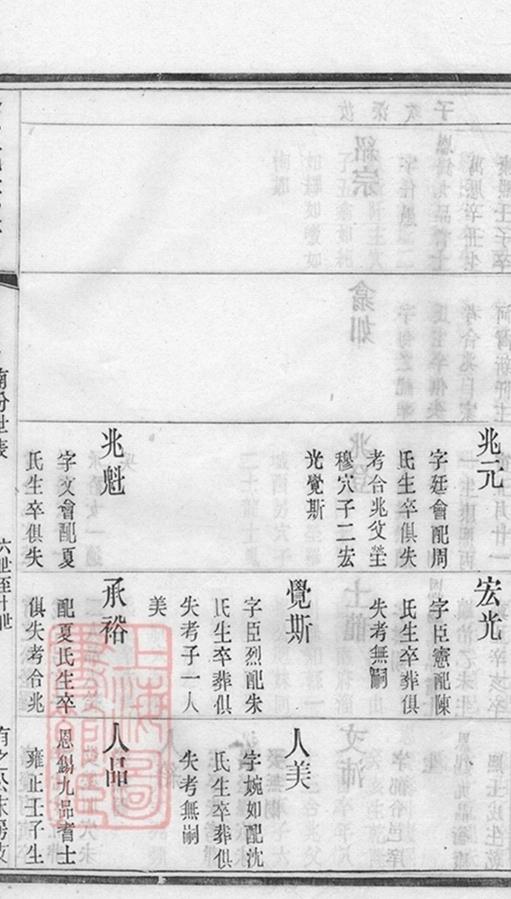 兆元
字廷會配周
氏生卒俱失
考合兆文塋
穆穴子二宏
光覺斯
兆魁
字文會配夏
氏生卒俱失
宏光
字臣憲配陳
氏生卒葬俱
失考無嗣
覺斯
字臣烈配朱
氏生卒葬俱
失考子一人
美
承裕
配夏氏生卒
俱失考合兆
人美
字婉如配沈
氏生卒葬俱
失考無嗣
人品
恩錫九品耆士
雍正壬子生
南份世表
六世至十世